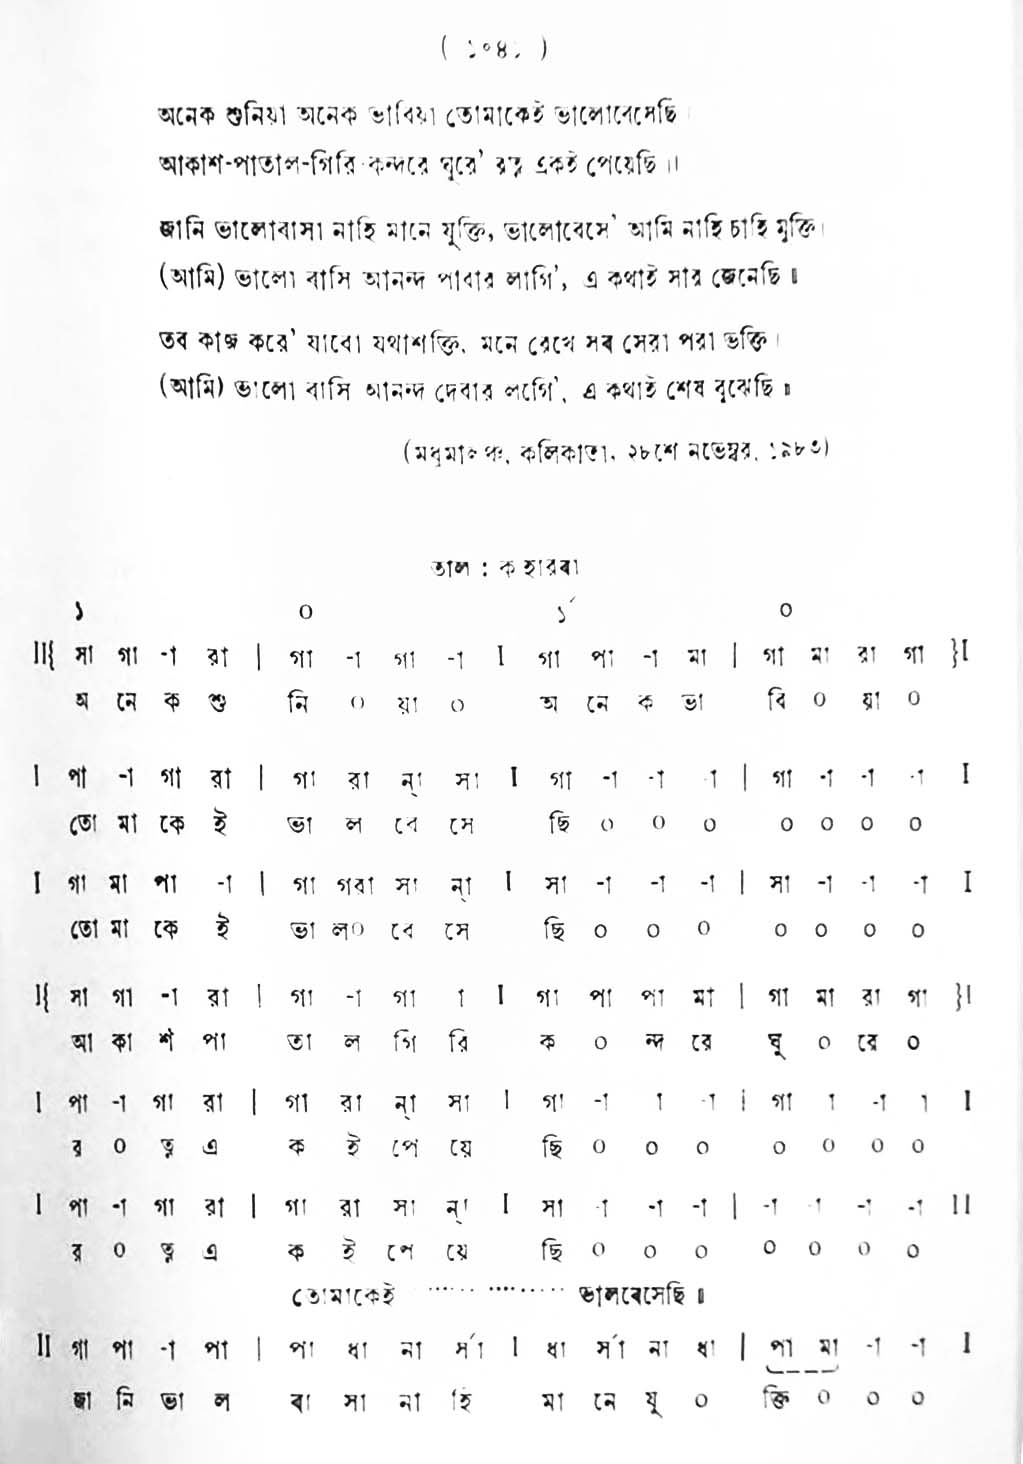 ( ১০৪১ )
অনেক শুনিয়া অনেক ভাবিয়া তোমাকেই ভালোবেসেছি ।
আকাশ-পাতাল-গিরি-কন্দরে ঘুরে’ রত্ন একই পেয়েছি ।।
জানি ভালোবাসা নাহি মানে যুক্তি, ভালোবেসে’ আমি নাহি চাহি মুক্তি।
(আমি) ভালো বাসি আনন্দ পাবার লাগি’, এ কথাই সার জেনেছি ॥
তব কাজ করে’ যাবো যথাশক্তি, মনে রেখে সব সেরা পরা ভক্তি ।
(আমি) ভালো বাসি আনন্দ দেবার লাগি’, এ কথাই শেষ বুঝেছি ॥
(মধুমালঞ্চ, কলিকাতা, ২৮শে নভেম্বর, ১৯৮৩)
তাল : কাহারবা
১ ০ ১´ ০
II{ সা গা -া রা | গা -া গা -া I গা পা -া মা | গা মা রা গা }I
অ নে ক শু নি ০ য়া ০ অ নে ক ভা বি ০ য়া ০
I পা -া গা রা | গা রা ন্া সা I গা -া -া -া | গা -া -া -া I
তো মা কে ই ভা ল বে সে ছি ০ ০ ০ ০ ০ ০ ০
I গা মা পা -া | গা গরা সা ন্া I সা -া -া -া | সা -া -া -া I
তো মা কে ই ভা ল০ বে সে ছি ০ ০ ০ ০ ০ ০ ০
I{ সা গা -া রা | গা -া গা া I গা পা পা মা | গা মা রা গা }I
আ কা শ পা তা ল গি রি ক ০ ন্দ রে ঘু ০ রে ০
I পা -া গা রা | গা রা ন্া সা I গা -া া -া | গা া -া া I
র ০ ত্ন এ ক ই পে য়ে ছি ০ ০ ০ ০ ০ ০ ০
I পা -া গা রা | গা রা সা ন্া I সা -া -া -া | -া -া -া -া II
র ০ ত্ন এ ক ই পে য়ে ছি ০ ০ ০ ০ ০ ০ ০
তোমাকেই ...... ......... ভালবেসেছি ॥
II গা পা -া পা | পা ধা না র্সা I ধা র্সা না ধা | পা মা -া -া I
জা নি ভা ল বা সা না হি মা নে যু ০ ক্তি ০ ০ ০